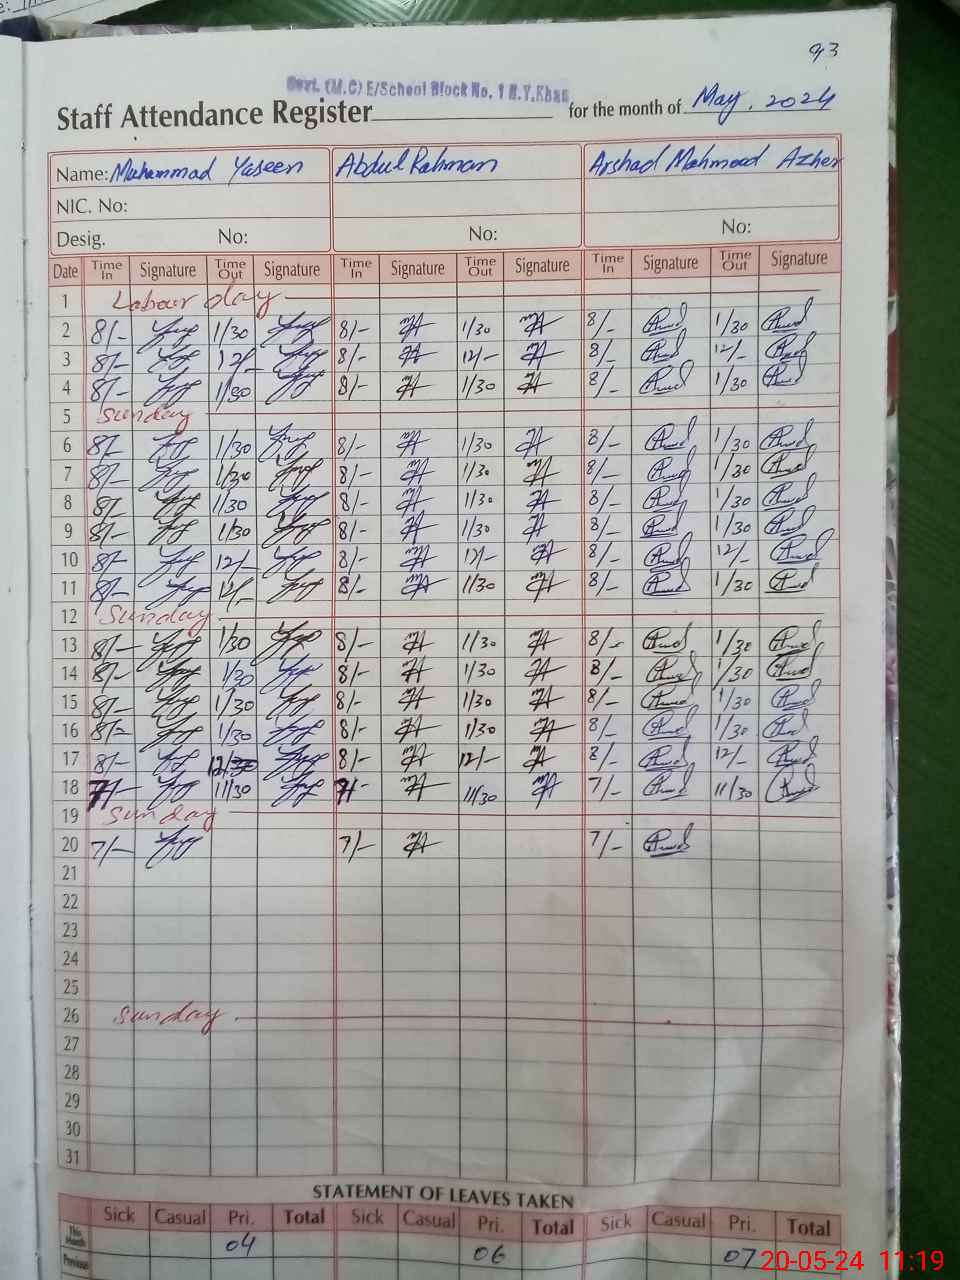 93
Govt. (M.C) E/School Block No. 1 R.Y.Khan
Staff Attendance Register for the month of May, 2024
Name: Muhammad Yaseen Abdul Rahman Arshad Mahmood Azher
NIC. No:
Desig. No: No: No:
Date Time In Signature Time Out Signature Time In Signature Time Out Signature Time In Signature Time Out Signature
1 Labour day
2 8/- 1/30 8/- 1/30 8/- 1/30
3 8/- 12/- 8/- 12/- 8/- 12/-
4 8/- 1/30 8/- 1/30 8/- 1/30
5 Sunday
6 8/- 1/30 8/- 1/30 8/- 1/30
7 8/- 1/30 8/- 1/30 8/- 1/30
8 8/- 1/30 8/- 1/30 8/- 1/30
9 8/- 1/30 8/- 1/30 8/- 1/30
10 8/- 12/- 8/- 12/- 8/- 12/-
11 8/- 12/- 8/- 1/30 8/- 1/30
12 Sunday
13 8/- 1/30 8/- 1/30 8/- 1/30
14 8/- 1/30 8/- 1/30 8/- 1/30
15 8/- 1/30 8/- 1/30 8/- 1/30
16 8/- 1/30 8/- 1/30 8/- 1/30
17 8/- 8/- 12/- 8/- 12/-
18 7/- 11/30 7/- 11/30 7/- 11/30
19 Sunday
20 7/- 7/- 7/-
21
22
23
24
25
26 Sunday
27
28
29
30
31
STATEMENT OF LEAVES TAKEN
Sick Casual Pri. Total Sick Casual Pri. Total Sick Casual Pri. Total
This Month 04 06 07
Previous
20-05-24 11:19